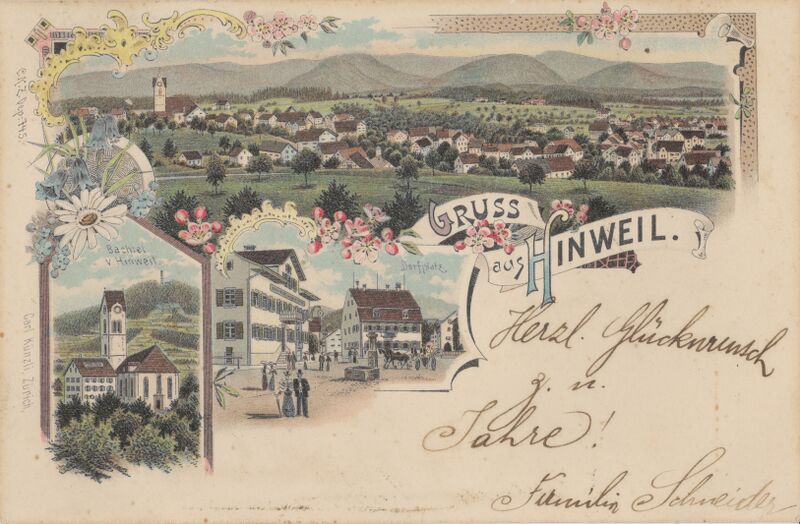 C.K.Z. Dep. 745
GRUSS
aus HINWEIL.
Bachtel
v. Hinweil.
Dorfplatz
Carl Künzli, Zürich.
Herzl. Glückwunsch
z. n.
Jahre!
Familie Schneider